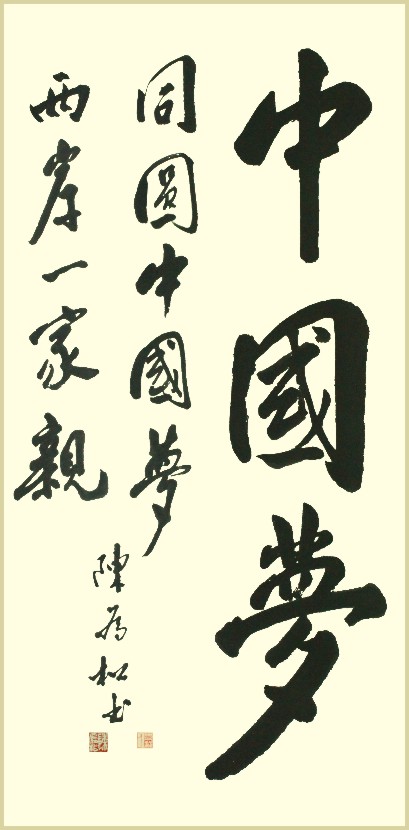 中國夢
同圓中國夢
兩岸一家親
陳為松书